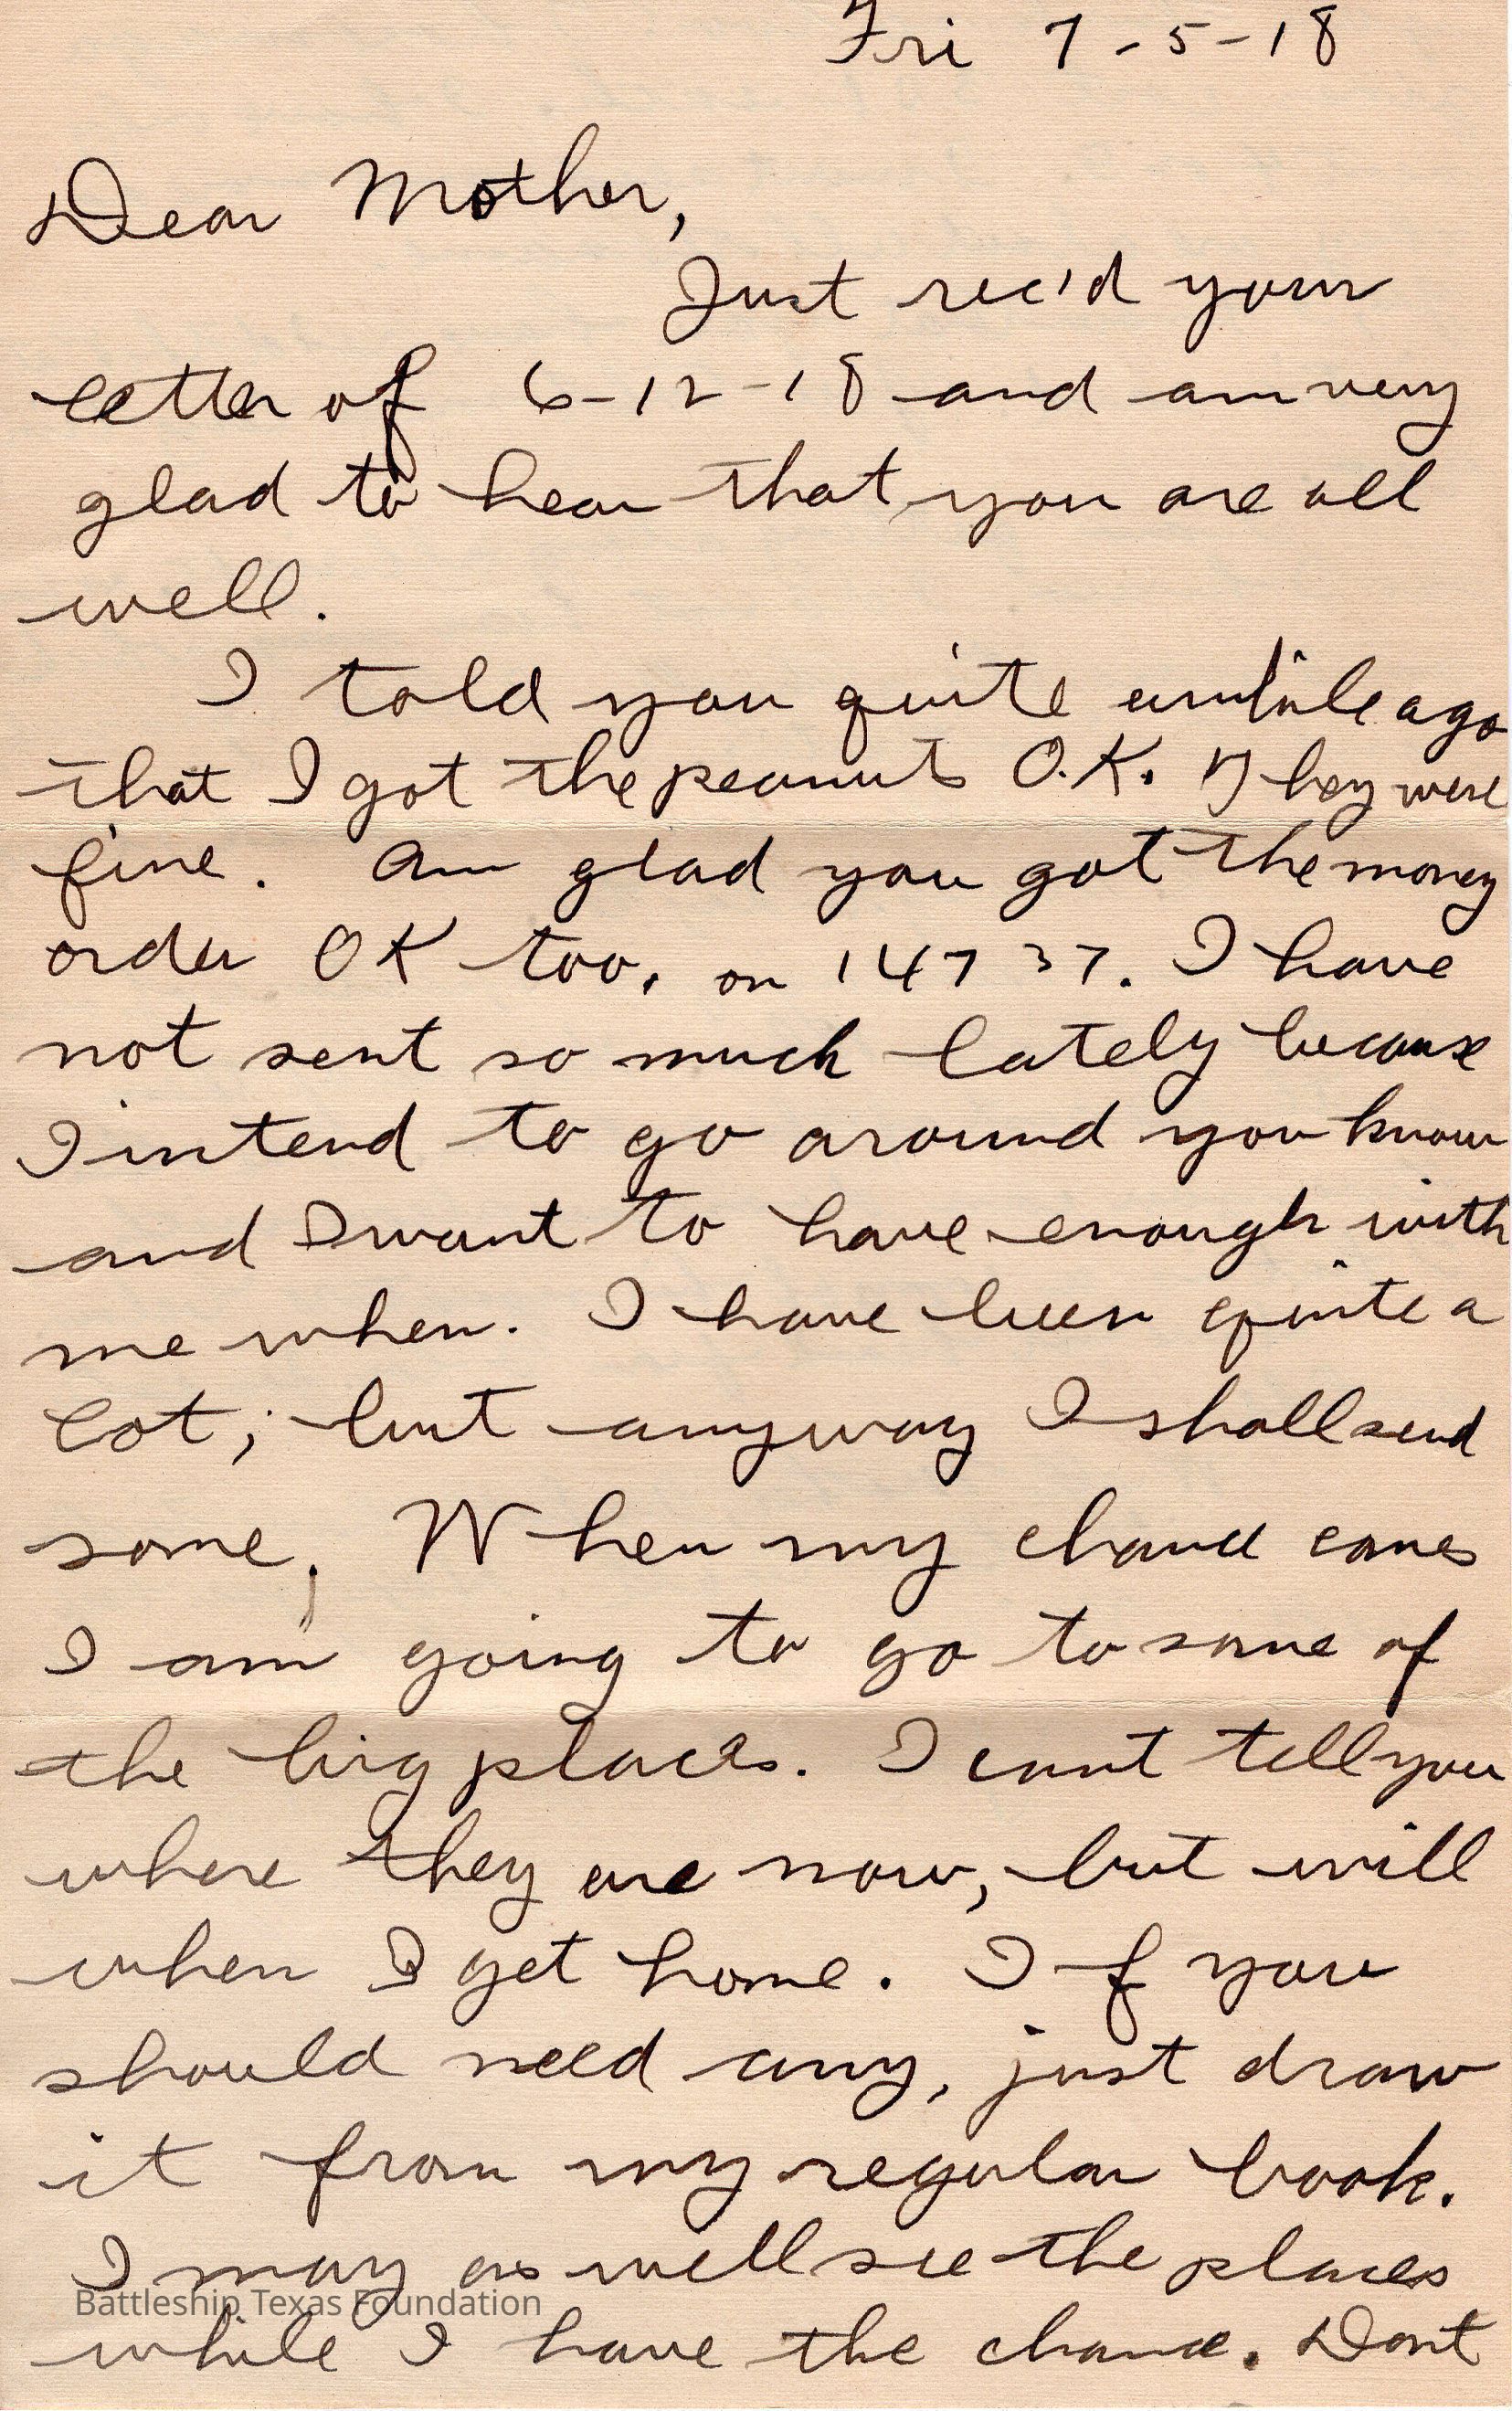 Fri 7-5-18
Dear Mother,
Just rec'd your
letter of 6-12-18 and am very
glad to hear that you are all
well.
I told you quite awhile ago
that I got the peanuts O.K. They were
fine. Am glad you got the money
order OK too, on 14737. I have
not sent so much lately because
I intend to go around you know
and I want to have enough with
me when. I have been quite a
lot; but anyway I shall send
some. When my chance comes
I am going to go to some of
the big places. I cant tell you
where they are now, but will
when I get home. If you
should need any, just draw
it from my regular book.
I may as well see the places
Battleship Texas Foundation
while I have the chance. Dont